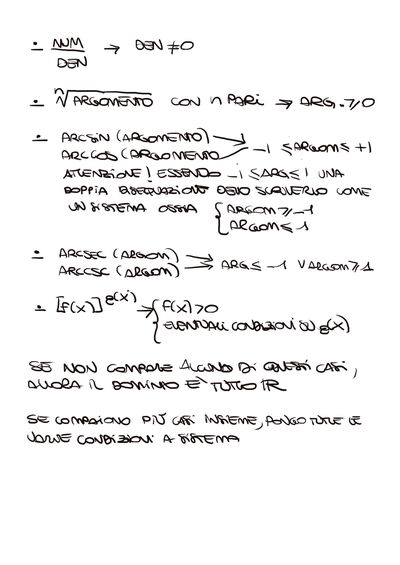 • NUM/DEN → DEN ≠ 0
• ⁿ√ARGOMENTO CON n PARI → ARG. ≥ 0
• ARCSIN (ARGOMENTO)
ARCCOS (ARGOMENTO → -1 ≤ ARGOM ≤ +1
ATTENZIONE! ESSENDO -1 ≤ ARG ≤ 1 UNA
DOPPIA DISEQUAZIONE DEVO SCRIVERLO COME
UN SISTEMA OSSIA { ARGOM ≥ -1
ARGOM ≤ 1
• ARCSEC (ARGOM)
ARCCSC (ARGOM) → ARG ≤ -1 ∨ ARGOM ≥ 1
• [f(x)]^g(x) → { f(x) > 0
EVENTUALI CONDIZIONI SU g(x)
SE NON COMPARE ALCUNO DI QUESTI CASI,
ALLORA IL DOMINIO E' TUTTO IR
SE COMPAIONO PIÙ CASI INSIEME, PONGO TUTTE LE
VARIE CONDIZIONI A SISTEMA